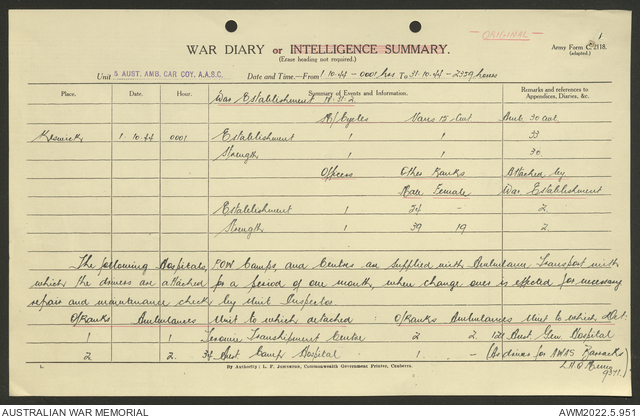 ORIGINAL 1
WAR DIARY or INTELLIGENCE SUMMARY.
Army Form C.2118.
(Erase heading not required.)
(adapted.)
Unit 5 AUST. AMB. CAR COY. A.A.S.C. Date and Time.—From 1.10.44 - 0001 hrs To 31.10.44 - 2359 hours
Place. Date. Hour. Summary of Events and Information. Remarks and references to Appendices, Diaries, &c.
War Establishment
M/Cycles Vans 15 cwt Amb 30 cwt
Keswick 1.10.44 0001 Establishment 1 1 33
Strength 1 1 30
Officers Other Ranks Attached by
Male Female War Establishment
Establishment 1 - 2
Strength 1 39 19 2
The following Hospitals, POW Camps, and Centres are supplied with Ambulance Transport with
which the drivers are attached for a period of one month, when change over is effected for necessary
repair and maintenance check by Unit Inspector
O/Ranks Ambulances Unit to which attached: O/Ranks Ambulances Unit to which
1 1 Terowie Transhipment Centre 2 2 121 Aust. Gen Hospital
2 2 34 Aust Camp Hospital 1 - (As for AWAS Barracks
L. By Authority: L. F. Johnston, Commonwealth Government Printer, Canberra. 9371.)
AUSTRALIAN WAR MEMORIAL AWM2022.5.951